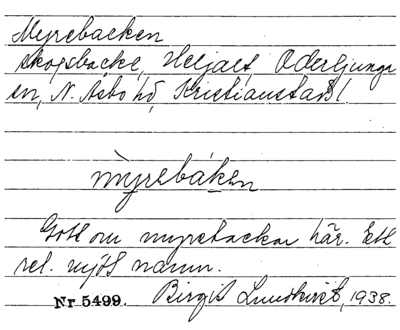 Myrebacken
skogsbacke, Heljalt, Oderljunga
sn, N. Åsbo hd, Kristianstads l.
myrebáken
Gott om myrebackar här. Ett
rel. nytt namn.
Nr 5499. Birgit Lundkvist, 1938.